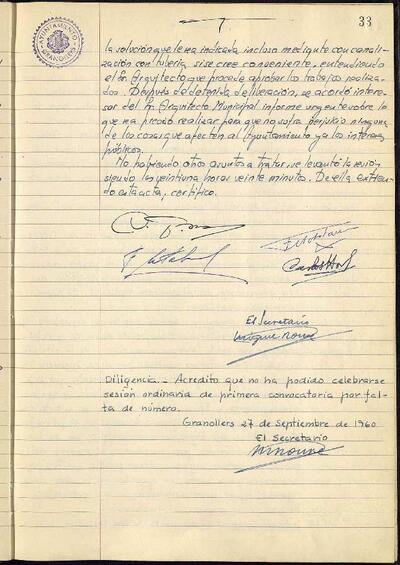 33
AYUNTAMIENTO
GRANOLLERS
la solución que lleva indicada incluso mediante con canali-
zación con tubería si se cree conveniente, entendiendo
el Sr. Arquitecto que procede aprobar los trabajos realiza-
dos. Después de detenida deliberación, se acordó intere-
sar del Sr. Arquitecto Municipal informe urgente sobre lo
que sea preciso realizar para que no sufra perjuicio ninguna
de las cosas que afecten al Ayuntamiento y a los intereses
públicos.
No habiendo otros asuntos a tratar, se levantó la sesión
siendo las veintiuna horas veinte minutos. De ella extien-
do esta acta, certifico.
El Secretario
Diligencia.- Acredito que no ha podido celebrarse
sesión ordinaria de primera convocatoria por fal-
ta de número.
Granollers 27 de Septiembre de 1960
El Secretario